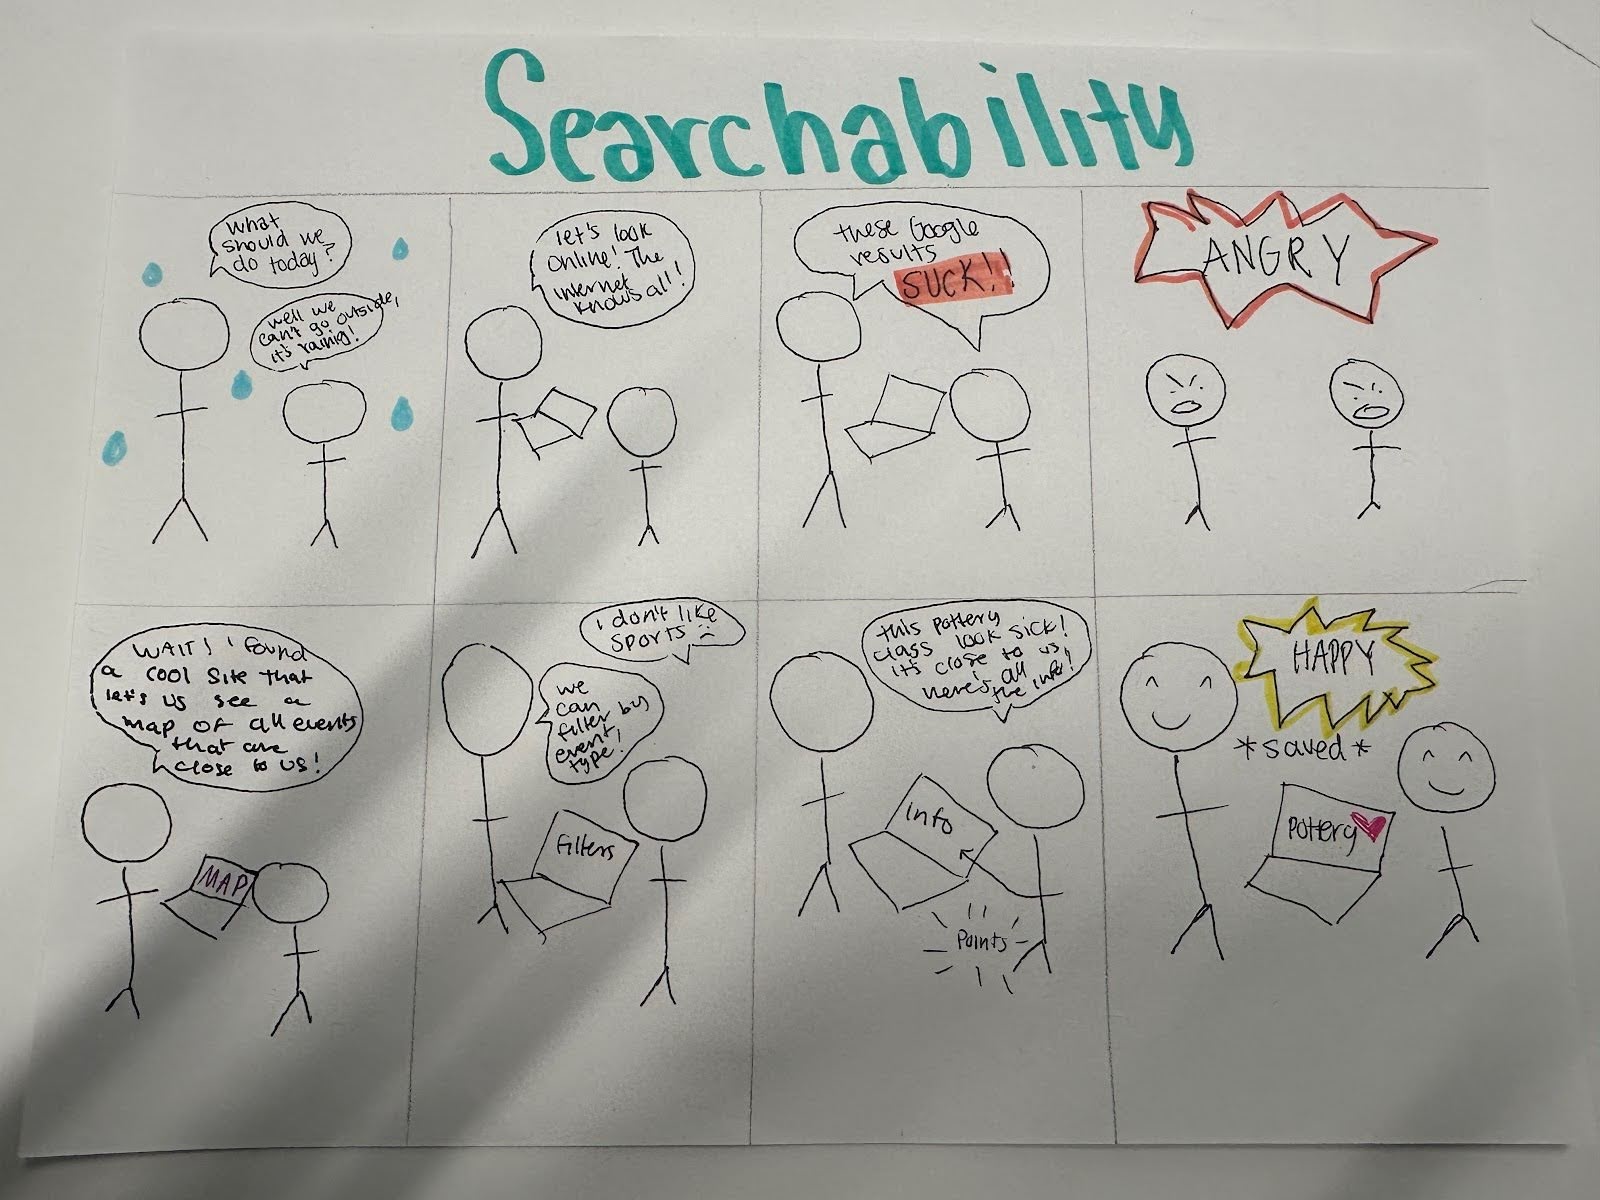 Searchability
What
should we
do today?
well we
can't go outside,
it's rainig!
let's look
online! The
internet
knows all!
these Google
results
SUCK!!
ANGRY
WAIT! I found
a cool site that
let's us see a
map of all events
that are
close to us!
MAP
i don't like
sports :(
we
can
filter by
event
type!
Filters
this pottery
class look sick!
it's close to us,
here's all
the info!
Info
Points
HAPPY
*saved*
Pottery